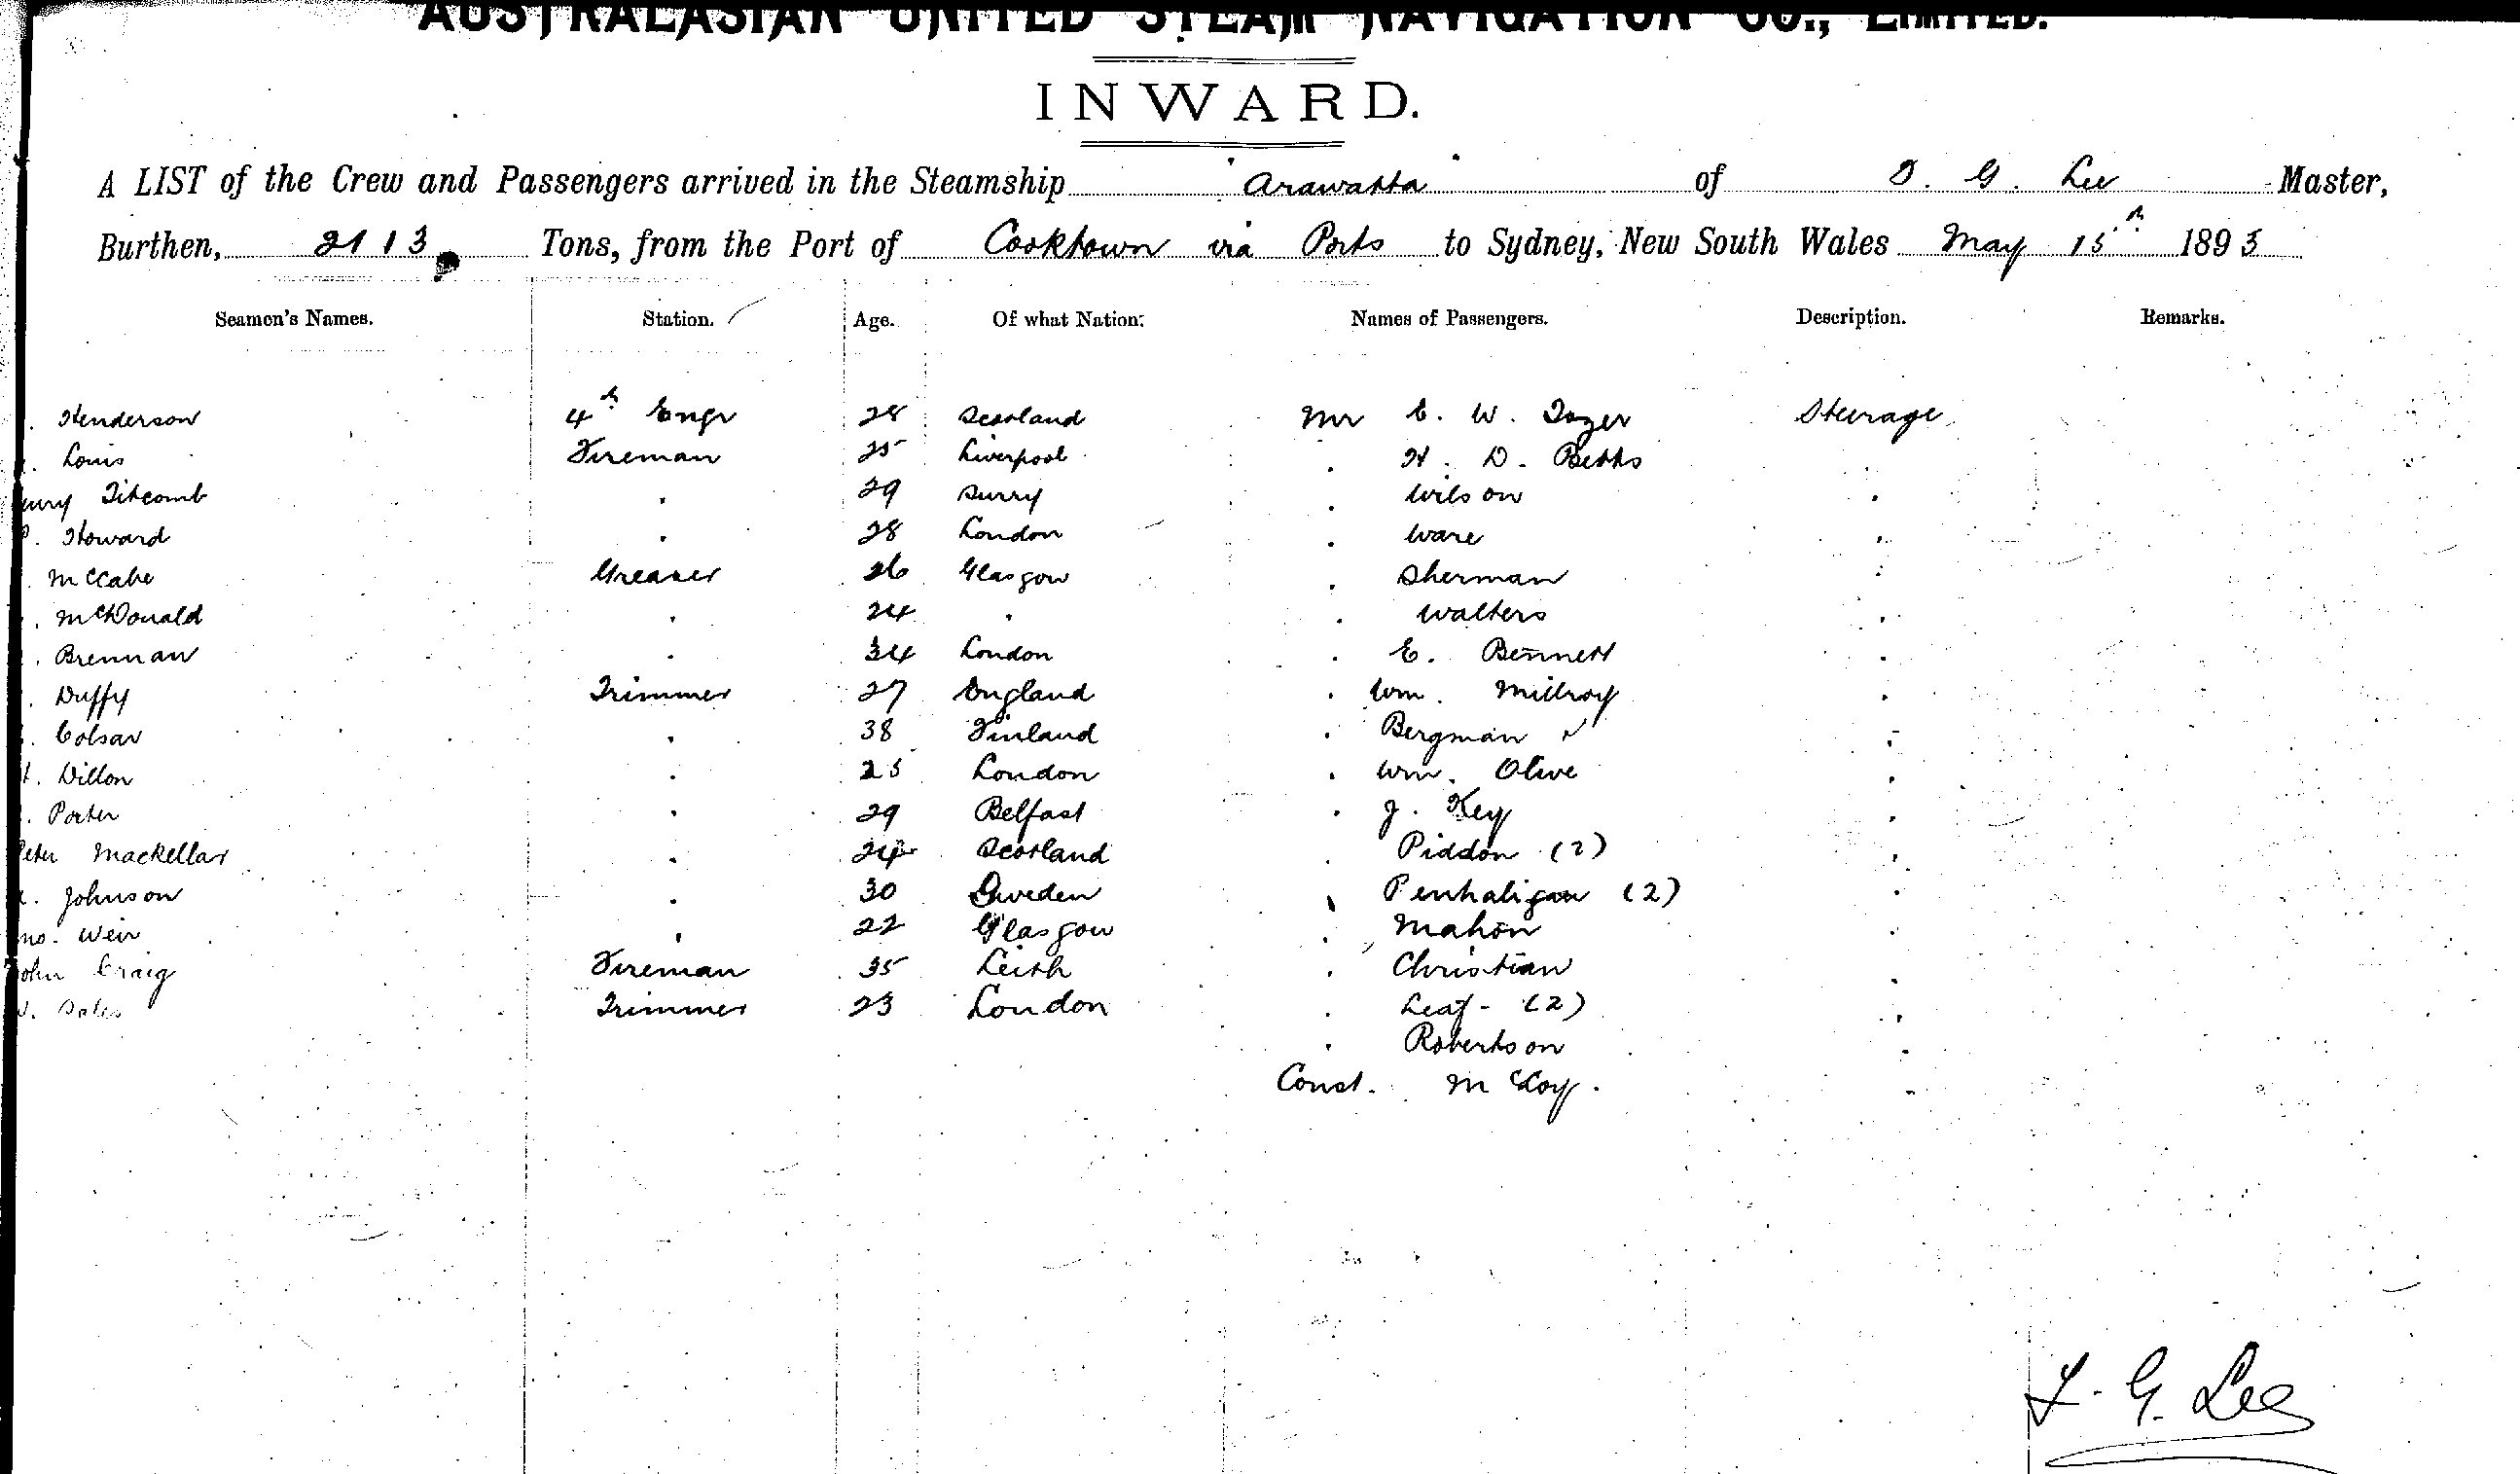 AUSTRALASIAN UNITED STEAM NAVIGATION CO., LIMITED.
INWARD.
A LIST of the Crew and Passengers arrived in the Steamship Arawatta of T. G. Lee Master,
Burthen, 2113 Tons, from the Port of Cooktown via Ports to Sydney, New South Wales May 15th 1893
Seamen's Names. Station. Age. Of what Nation: Names of Passengers. Description. Remarks.
Henderson 4th Engr 28 Scotland Mr E. W. Tozer Steerage
Louis Fireman 25 Liverpool " H. D. Betts "
Titcomb " 29 Surry " Wilson "
Howard " 28 London " Ware "
McCabe Greaser 26 Glasgow " Sherman "
McDonald " 24 " " Walters "
Brennan " 34 London " E. Bennett "
Duffy Trimmer 27 England " Wm. Millroy "
Colsar " 38 Finland " Bergman "
Dillon " 25 London " Wm. Olive "
Porter " 29 Belfast " J. Key "
Peter MacKellar " 24 Scotland " Piddon (2) "
Johnson " 30 Sweden " Penhaligan (2) "
Jno. Weir " 22 Glasgow " Mahon "
John Craig Fireman 35 Leith " Christian "
Trimmer 23 London " Leaf - (2) "
" Robertson "
Const. McCoy. "
T. G. Lee